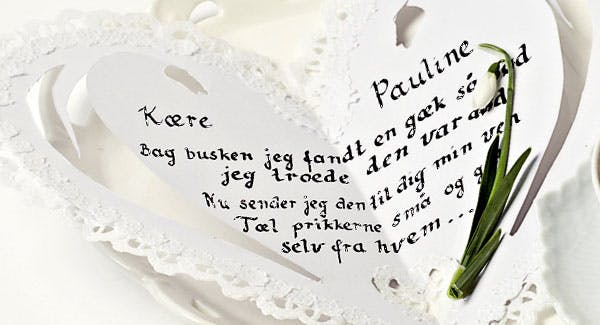 Kære Pauline
Bag busken jeg fandt en gæk så
jeg troede den var
Nu sender jeg den til dig min ven
Tæl prikkerne små og
selv fra hvem...